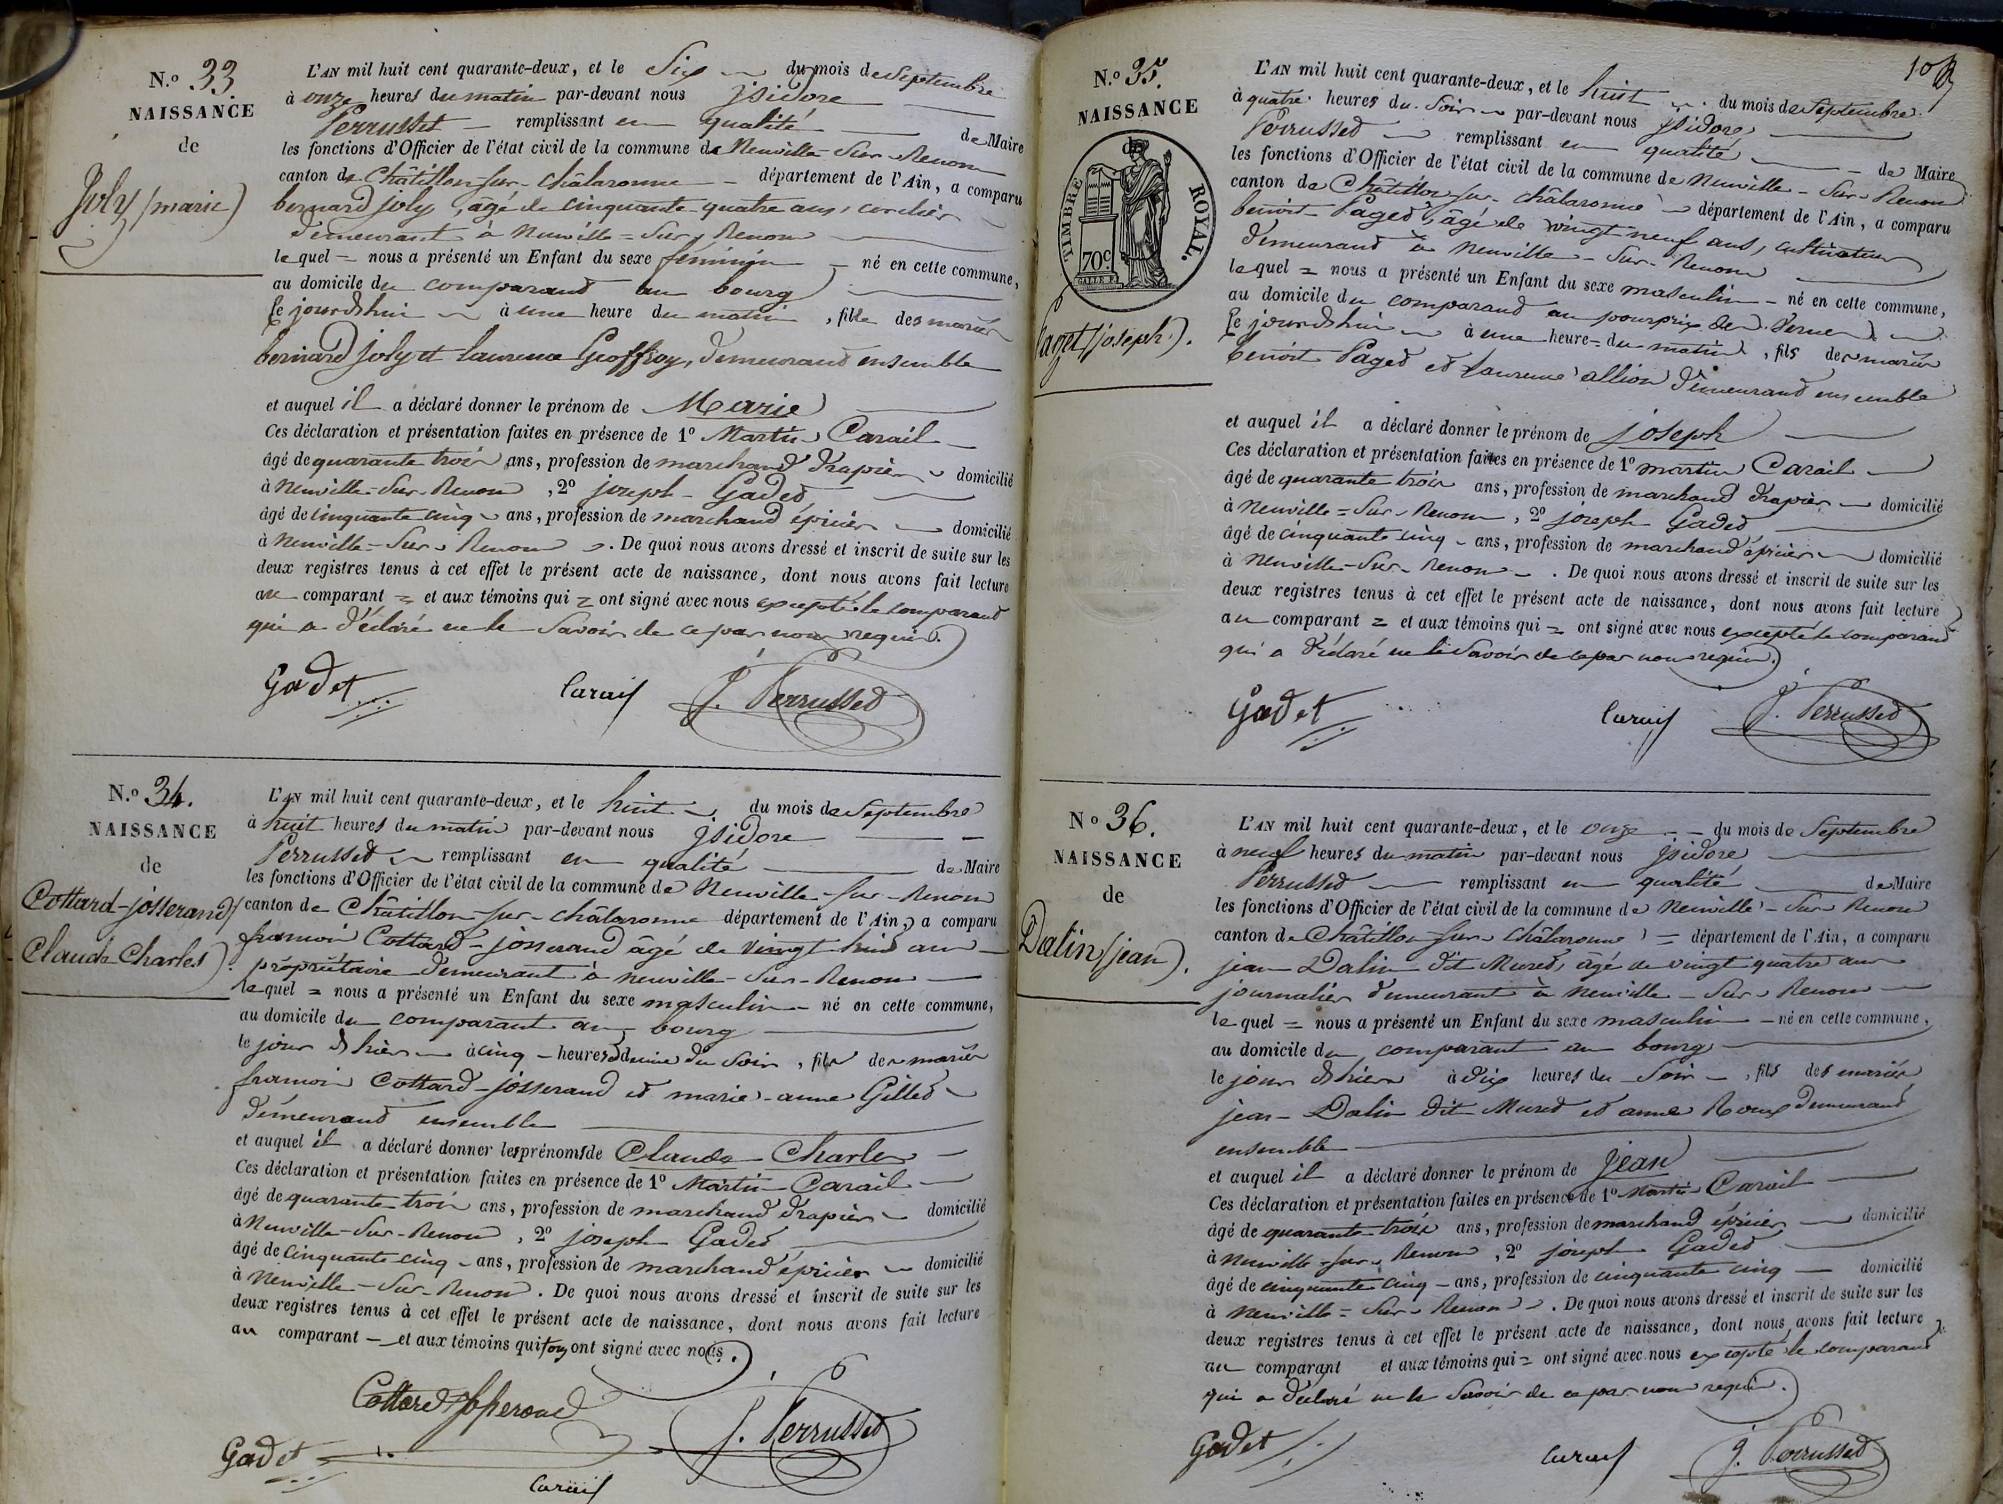 N.º 33.
NAISSANCE
de
Joly (marie)
L'AN mil huit cent quarante-deux, et le Six du mois de Septembre
à onze heures du matin par-devant nous jsidore
Perrusset remplissant en qualité de Maire
les fonctions d'Officier de l'état civil de la commune de Neuville-Sur-Renom
canton de Châtillon-sur-châlaronne département de l'Ain, a comparu
bernard joly, âgé de cinquante-quatre ans, cordier
demeurant à Neuville=Sur-Renom
lequel = nous a présenté un Enfant du sexe féminin né en cette commune,
au domicile du comparand au bourg
le jourdhui à une heure du matin, fille des mariés
bernard joly et laurence Geoffroy, demeurand ensemble
et auquel il a déclaré donner le prénom de Marie
Ces déclaration et présentation faites en présence de 1º Martin Carail
âgé de quarante trois ans, profession de marchand drapier domicilié
à Neuville-Sur-Renom, 2º joseph Gaded
âgé de cinquante cinq ans, profession de marchand épicier domicilié
à Neuville-Sur-Renom. De quoi nous avons dressé et inscrit de suite sur les
deux registres tenus à cet effet le présent acte de naissance, dont nous avons fait lecture
au comparant = et aux témoins qui = ont signé avec nous excepté le comparand
qui a déclaré ne le Savoir de ce par nous requis.
Gadet Carail J. Perrussed
N.º 34.
NAISSANCE
de
Cottard-josserand
Claude Charles).
L'AN mil huit cent quarante-deux, et le huit du mois de Septembre
à huit heures du matin par-devant nous jsidore
Perrussed remplissant en qualité de Maire
les fonctions d'Officier de l'état civil de la commune de Neuville-sur-Renom
canton de Châtillon-sur-châlaronne département de l'Ain, a comparu
francoi Cottard-josserand âgé de vingt huid ans
propriétaire demeurant à neuville-Sur-Renom
lequel = nous a présenté un Enfant du sexe masculin né en cette commune,
au domicile du comparant au bourg
le jour d'hier à cinq heures & demie du Soir, fils des mariés
francoi Cottard-josserand et marie-anne Gilled
demeurand ensemble
et auquel il a déclaré donner les prénoms de Claude Charles
Ces déclaration et présentation faites en présence de 1º Martin Carail
âgé de quarante-trois ans, profession de marchand drapier domicilié
à Neuville-Sur-Renom, 2º joseph Gaded
âgé de Cinquante cinq ans, profession de marchand épicier domicilié
à Neuville-Sur-Renom. De quoi nous avons dressé et inscrit de suite sur les
deux registres tenus à cet effet le présent acte de naissance, dont nous avons fait lecture
au comparant et aux témoins qui tous ont signé avec nous.
Cottard Josserand
Gadet Carail J. Perrussed
N.º 35.
NAISSANCE
de
TIMBRE ROYAL.
70c
Paget (joseph).
L'AN mil huit cent quarante-deux, et le huit du mois de Septembre
à quatre heures du Soir par-devant nous jsidore
Perrussed remplissant en qualité de Maire
les fonctions d'Officier de l'état civil de la commune de Neuville-Sur-Renom
canton de Châtillon-sur-châlaronne département de l'Ain, a comparu
benoit Paged, âgé de vingt neuf ans, cultivateur
demeurand à neuville-Sur-Renom
lequel = nous a présenté un Enfant du sexe masculin né en cette commune,
au domicile du comparand au pourprix de Verne
le jourdhui à une heure = du matin, fils des mariés
benoit Paged et Laurence allion demeurand ensemble
et auquel il a déclaré donner le prénom de joseph
Ces déclaration et présentation faites en présence de 1º martin Carail
âgé de quarante trois ans, profession de marchand drapier domicilié
à Neuville=Sur-Renom, 2º joseph Gaded
âgé de cinquante cinq ans, profession de marchand épicier domicilié
à Neuville-Sur-Renom. De quoi nous avons dressé et inscrit de suite sur les
deux registres tenus à cet effet le présent acte de naissance, dont nous avons fait lecture
au comparant = et aux témoins qui = ont signé avec nous excepté le comparand
qui a déclaré ne le Savoir de ce par nous requis.
Gadet Carail J. Perrussed
Nº 36.
NAISSANCE
de
Dalin (jean).
L'AN mil huit cent quarante-deux, et le onze du mois de Septembre
à neuf heures du matin par-devant nous jsidore
Perrussed remplissant en qualité de Maire
les fonctions d'Officier de l'état civil de la commune de Neuville-Sur-Renom
canton de Châtillon-sur-châlaronne = département de l'Ain, a comparu
jean Dalin dit Mured, âgé de vingt quatre ans
journalier demeurant à Neuville-Sur-Renom
lequel = nous a présenté un Enfant du sexe masculin né en cette commune,
au domicile du comparant au bourg
le jour d'hier à dix heures du Soir, fils des mariés
jean Dalin dit Mured et anne Roux demeurand
ensemble
et auquel il a déclaré donner le prénom de jean
Ces déclaration et présentation faites en présence de 1º Martin Carail
âgé de quarante-trois ans, profession de marchand épicier domicilié
à Neuville-sur-Renom, 2º joseph Gaded
âgé de cinquante cinq ans, profession de cinquante cinq domicilié
à Neuville=Sur-Renom. De quoi nous avons dressé et inscrit de suite sur les
deux registres tenus à cet effet le présent acte de naissance, dont nous avons fait lecture
au comparant et aux témoins qui = ont signé avec nous excepté le comparand
qui a déclaré ne le Savoir de ce par nous requis.
Gadet Carail J. Perrussed